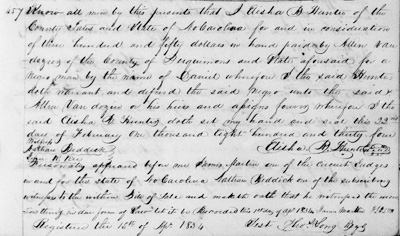 457 Know all men by this presents that I Elisha B Hunter of the
County Gates and State of No Carolina for and in consideration
of three hundred and fifty dollars in hand paid by Allen Van
dozen of the County of Perquimons and State aforesaid for a
Negro man by the name of Daniel whereof I the said Hunter
doth warrant and defend the said Negro unto the said
Allen Vandozen or his heirs and assigns forever whereof I the
said Elisha B Hunter doth set my hand and seal this 22nd
day of February one thousand eight hundred and thirty four
Elisha B Hunter
Riddick
Personaly appeared before me Martin one of the Circuit Judges
in and for this State of No Carolina Riddick one of the subscribing
witnesses to the within Bill of Sale and maketh oath that he witnessed the same
in due form of Law let it be Recorded this
Registered the 15th of Apl 1834 Test Long